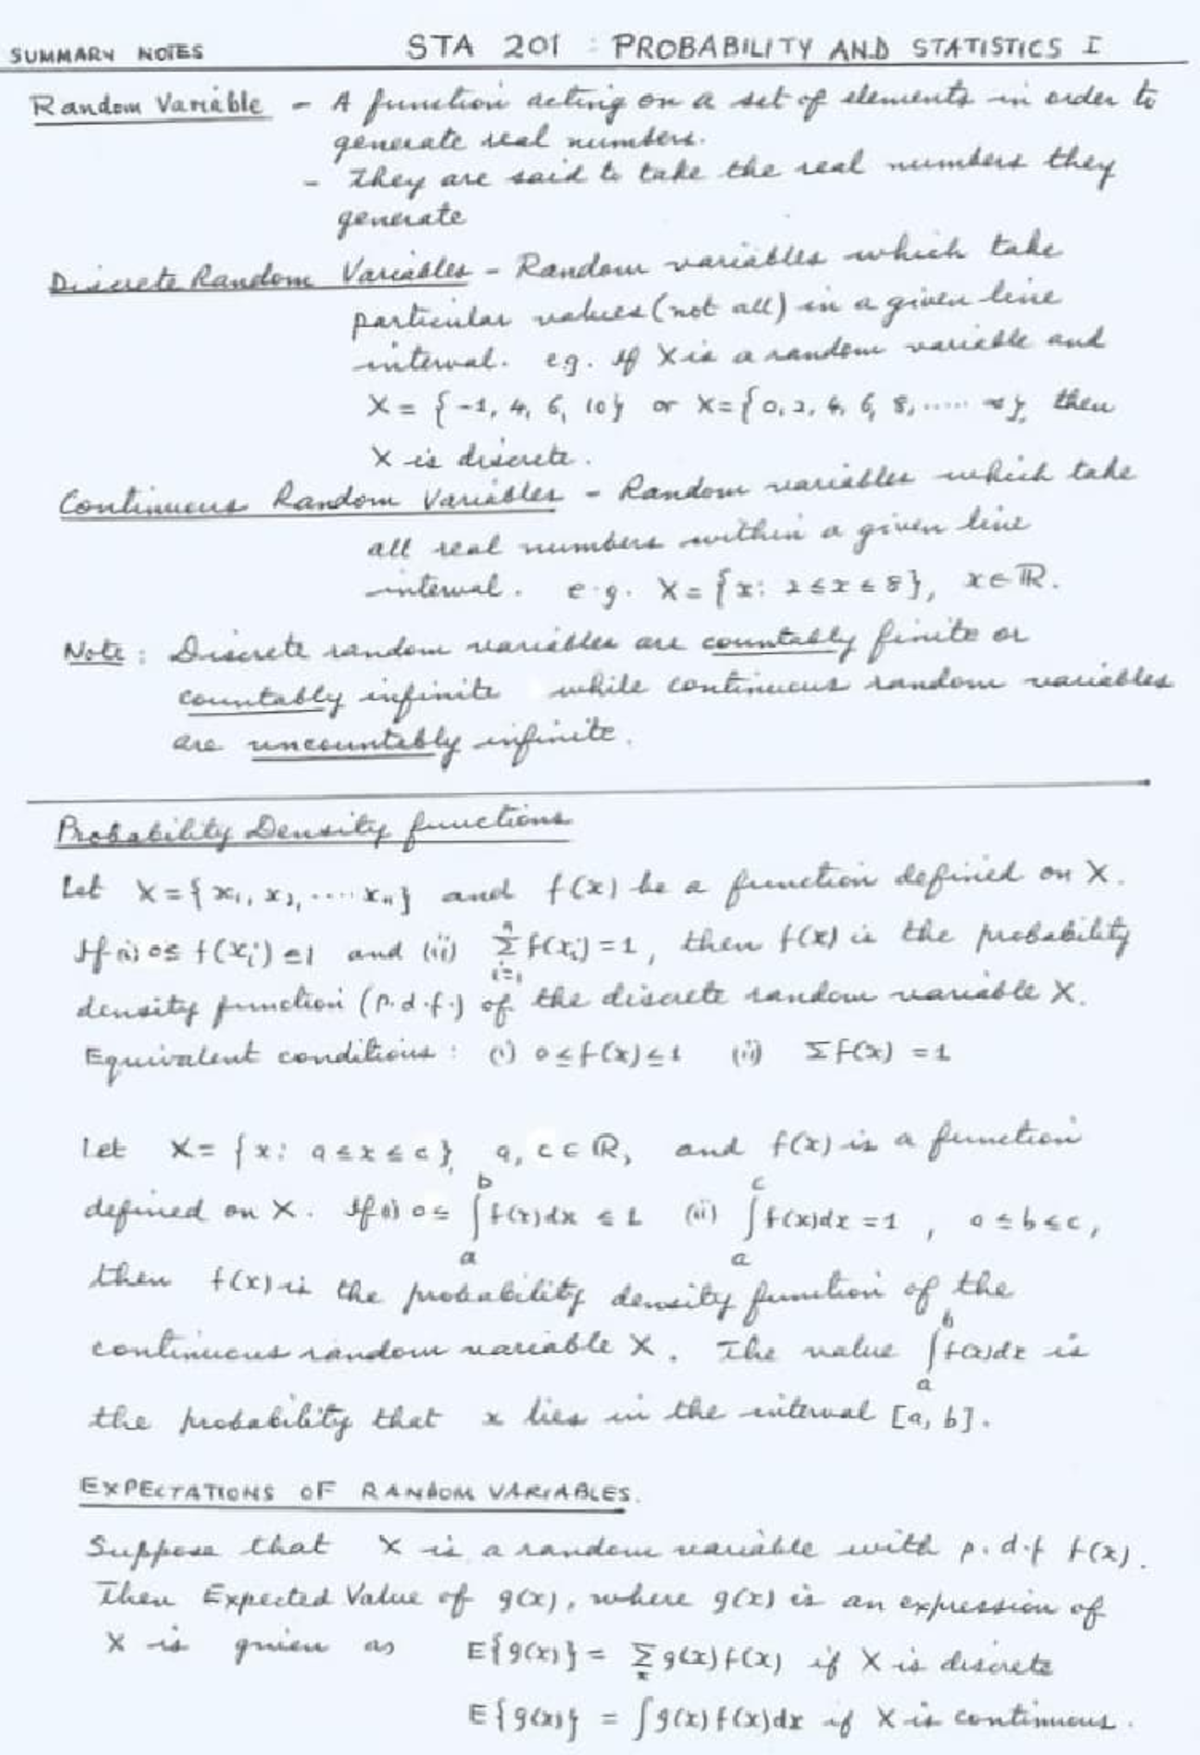 SUMMARY NOTES STA 201 : PROBABILITY AND STATISTICS I
Random Variable - A function acting on a set of elements in order to
generate real numbers.
- They are said to take the real numbers they
generate
Discrete Random Variables - Random variables which take
particular values (not all) in a given line
interval. e.g. If X is a random variable and
X = {-1, 4, 6, 10} or X = {0, 2, 4, 6, 8, ..... ∞}, then
X is discrete.
Continuous Random Variables - Random variables which take
all real numbers within a given line
interval. e.g. X = {x: 2 ≤ x ≤ 8}, x ∈ ℝ.
Note : Discrete random variables are countably finite or
countably infinite while continuous random variables
are uncountably infinite.
Probability Density functions
Let X = {x₁, x₂, ..... xₙ} and f(x) be a function defined on X.
If (i) 0 ≤ f(xᵢ) ≤ 1 and (ii) Σⁿᵢ₌₁ f(xᵢ) = 1, then f(x) is the probability
density function (p.d.f.) of the discrete random variable X.
Equivalent conditions : (i) 0 ≤ f(x) ≤ 1 (ii) Σ f(x) = 1
Let X = {x: a ≤ x ≤ c}, a, c ∈ ℝ, and f(x) is a function
defined on X. If (i) 0 ≤ ∫ₐᵇ f(x)dx ≤ 1 (ii) ∫ₐᶜ f(x)dx = 1, a ≤ b ≤ c,
then f(x) is the probability density function of the
continuous random variable X. The value ∫ₐᵇ f(x)dx is
the probability that x lies in the interval [a, b].
EXPECTATIONS OF RANDOM VARIABLES.
Suppose that X is a random variable with p.d.f f(x).
Then Expected Value of g(x), where g(x) is an expression of
X is given as E{g(x)} = Σₓ g(x) f(x) if X is discrete
E{g(x)} = ∫ g(x) f(x)dx if X is continuous.